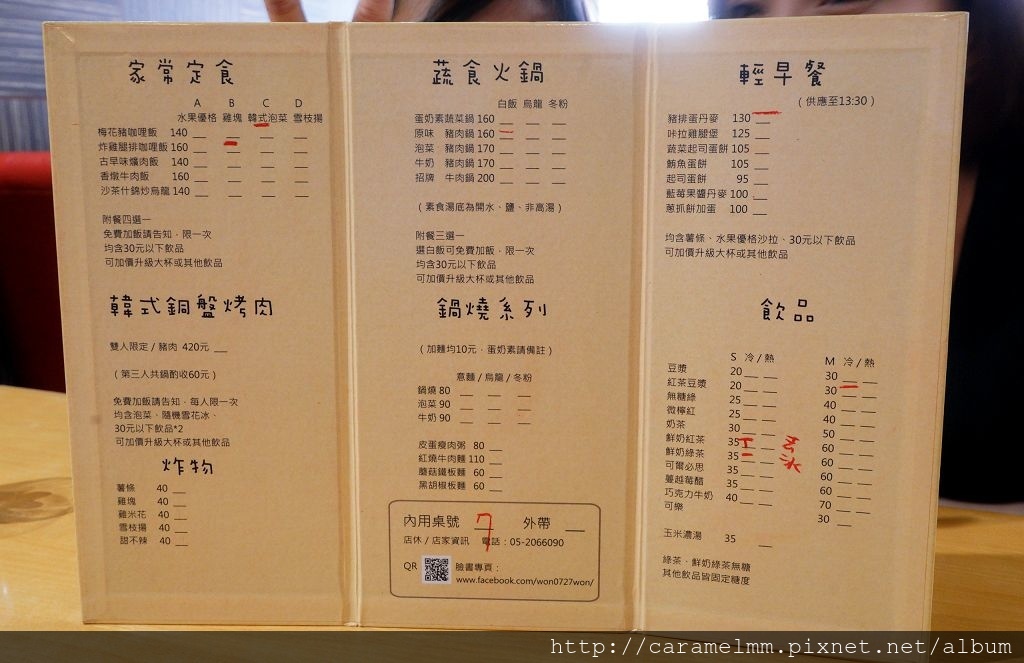 家常定食
A B C D
水果優格 雞塊 韓式泡菜 雪枝揚
梅花豬咖哩飯 140
炸雞腿排咖哩飯 160
古早味爌肉飯 140
香燉牛肉飯 160
沙茶什錦炒烏龍 140
附餐四選一
免費加飯請告知,限一次
均含30元以下飲品
可加價升級大杯或其他飲品
韓式銅盤烤肉
雙人限定 / 豬肉 420元
( 第三人共鍋酌收60元 )
免費加飯請告知,每人限一次
均含泡菜、隨機雪花冰、
30元以下飲品*2
可加價升級大杯或其他飲品
炸物
薯條 40
雞塊 40
雞米花 40
雪枝揚 40
甜不辣 40
蔬食火鍋
白飯 烏龍 冬粉
蛋奶素蔬菜鍋 160
原味 豬肉鍋 160
泡菜 豬肉鍋 170
牛奶 豬肉鍋 170
招牌 牛肉鍋 200
( 素食湯底為開水、鹽、非高湯 )
附餐三選一
選白飯可免費加飯,限一次
均含30元以下飲品
可加價升級大杯或其他飲品
鍋燒系列
( 加麵均10元,蛋奶素請備註 )
意麵 / 烏龍 / 冬粉
鍋燒 80
泡菜 90
牛奶 90
皮蛋瘦肉粥 80
紅燒牛肉麵 110
蘑菇鐵板麵 60
黑胡椒板麵 60
內用桌號 7 外帶
店休 / 店家資訊 電話:05-2066090
QR 臉書專頁:
www.facebook.com/won0727won/
輕早餐
( 供應至13:30 )
豬排蛋丹麥 130
咔拉雞腿堡 125
蔬菜起司蛋餅 105
鮪魚蛋餅 105
起司蛋餅 95
藍莓果醬丹麥 100
蔥抓餅加蛋 100
均含薯條、水果優格沙拉、30元以下飲品
可加價升級大杯或其他飲品
飲品
S 冷 / 熱 M 冷 / 熱
豆漿 20 30
紅茶豆漿 20 30
無糖綠 25 40
微檸紅 25 40
奶茶 30 50
鮮奶紅茶 35 60
鮮奶綠茶 35 60
可爾必思 35 60
蔓越莓醋 35 60
巧克力牛奶 40 70
可樂 30
玉米濃湯 35
綠茶、鮮奶綠茶無糖
其他飲品皆固定糖度
http://caramelmm.pixnet.net/album